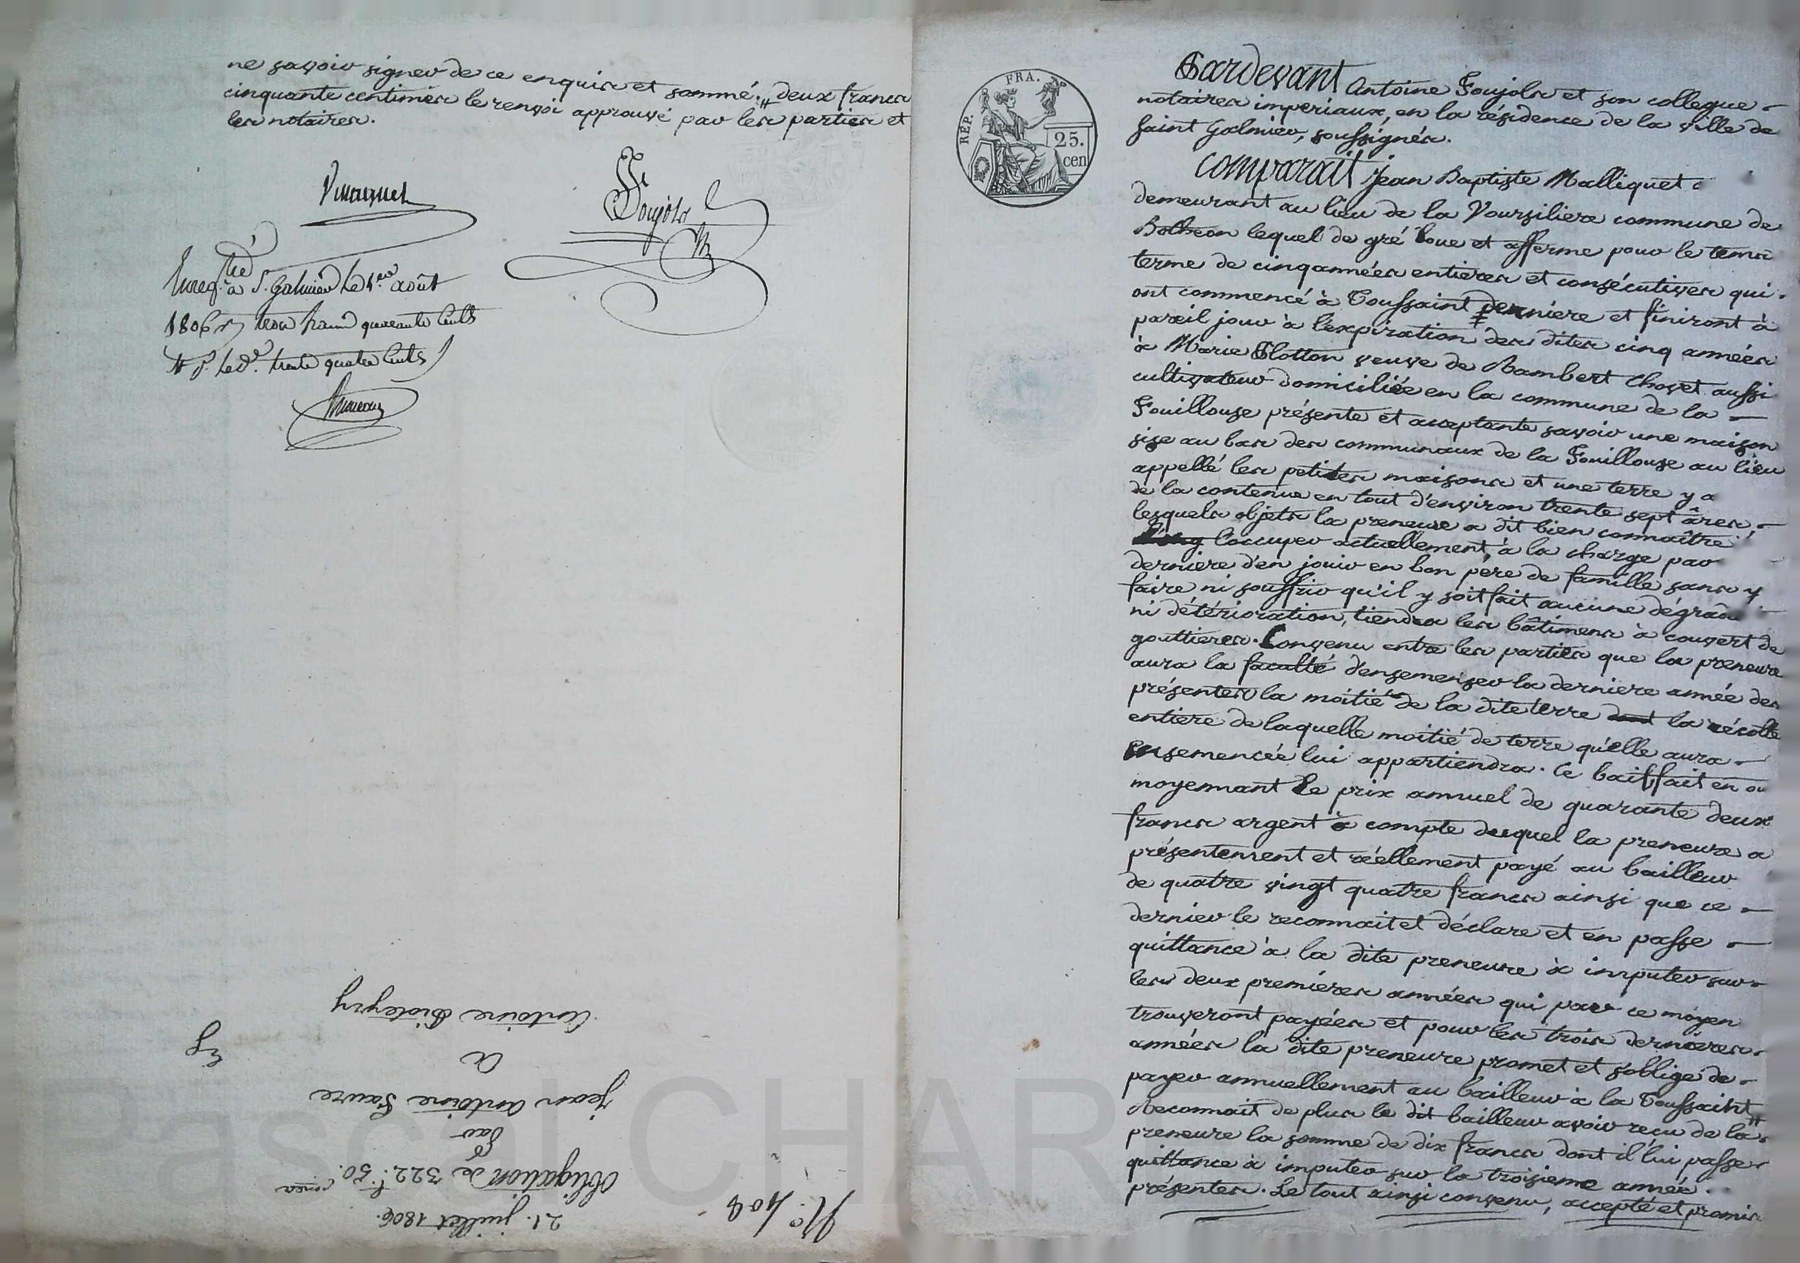 ne savoir signer de ce enquis et sommé. deux francs
cinquante centimes le renvoi approuvé par les parties et
les notaires.
Foujols
Enreg.ré à S. Galmier le 1er août
1806 trois francs quarante cents
trente quatre cents
Antoine Bioleyry
a
jean antoine Faure
Par
obligation de 322 f. 50. cmes
21. juillet 1806.
N.° 404
REP. FRA.
25.
cen
Pardevant Antoine Foujols et son collegue
notaires imperiaux, en la résidence de la ville de
saint Galmier, soussignés.
comparait jean Baptiste Malliquet
demeurant au lieu de la Voursiliere commune de
Botheon lequel de gré loue et afferme pour le tems
terme de cinq années entieres et consécutives qui
ont commencé à Toussaint derniere et finiront à
pareil jour à l'expiration des dites cinq années
à Marie Plotton veuve de Rambert Chovet aussi
cultivateur domiciliée en la commune de la
Fouillouse présente et acceptante savoir une maison
sise au bas des communaux de la Fouillouse au lieu
appellé les petites maisons et une terre y a
de la contenue en tout d'environ trente sept âres
lesquels objets la preneuse a dit bien connaître
l'occuper actuellement, à la charge par
derniere d'en jouir en bon père de famille sans y
faire ni souffrir qu'il y soit fait aucune dégrad
ni détérioration, tiendra les bâtimens à couvert de
gouttieres. Convenu entre les parties que la preneuse
aura la faculté d'ensemenser la derniere année des
présentes la moitié de la dite terre la récolte
entiere de laquelle moitié de terre qu'elle aura
ensemencée lui appartiendra. Ce bail fait en ou
moyennant le prix annuel de quarante deux
francs argent à compte duquel la preneuse a
présentement et réellement payé au bailleur
de quatre vingt quatre francs ainsi que ce
dernier le reconnait et déclare et en passe
quittance à la dite preneuse à imputer sur
les deux premieres années qui par ce moyen
trouveront payées et pour les trois dernieres
années la dite preneuse promet et s'oblige de
payer annuellement au bailleur à la Toussaint
Reconnait de plus le dit bailleur avoir reçu de la
preneuse la somme de dix francs dont il lui passe
quittance à imputer sur la troisieme année
présentes. Le tout ainsi convenu, accepté et promis
Pascal CHAR